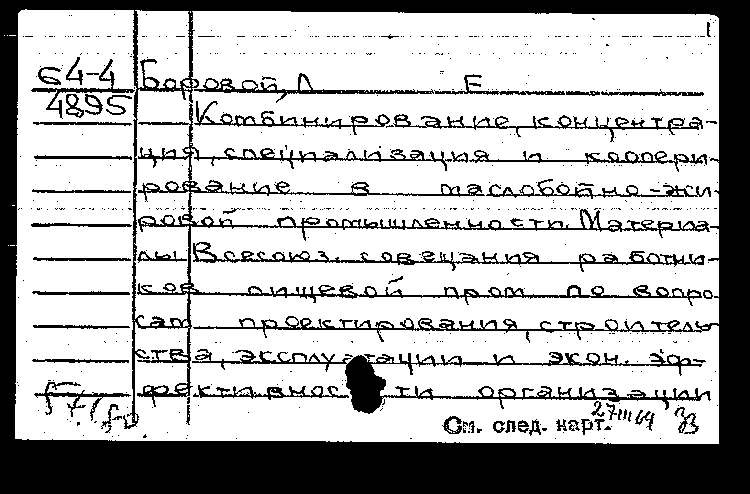 64-4 Боровой, Л Е
4895 Комбинирование, концентра-
ция, специализация и коопери-
рование в маслобойно-жи-
ровой промышленности. Материа-
лы Всесоюз. совещания работни-
ков пищевой пром по вопро
сам проектирования, строитель
ства, эксплуатации и экон. эф-
фективности организации
См. след. карт.
27 III 64